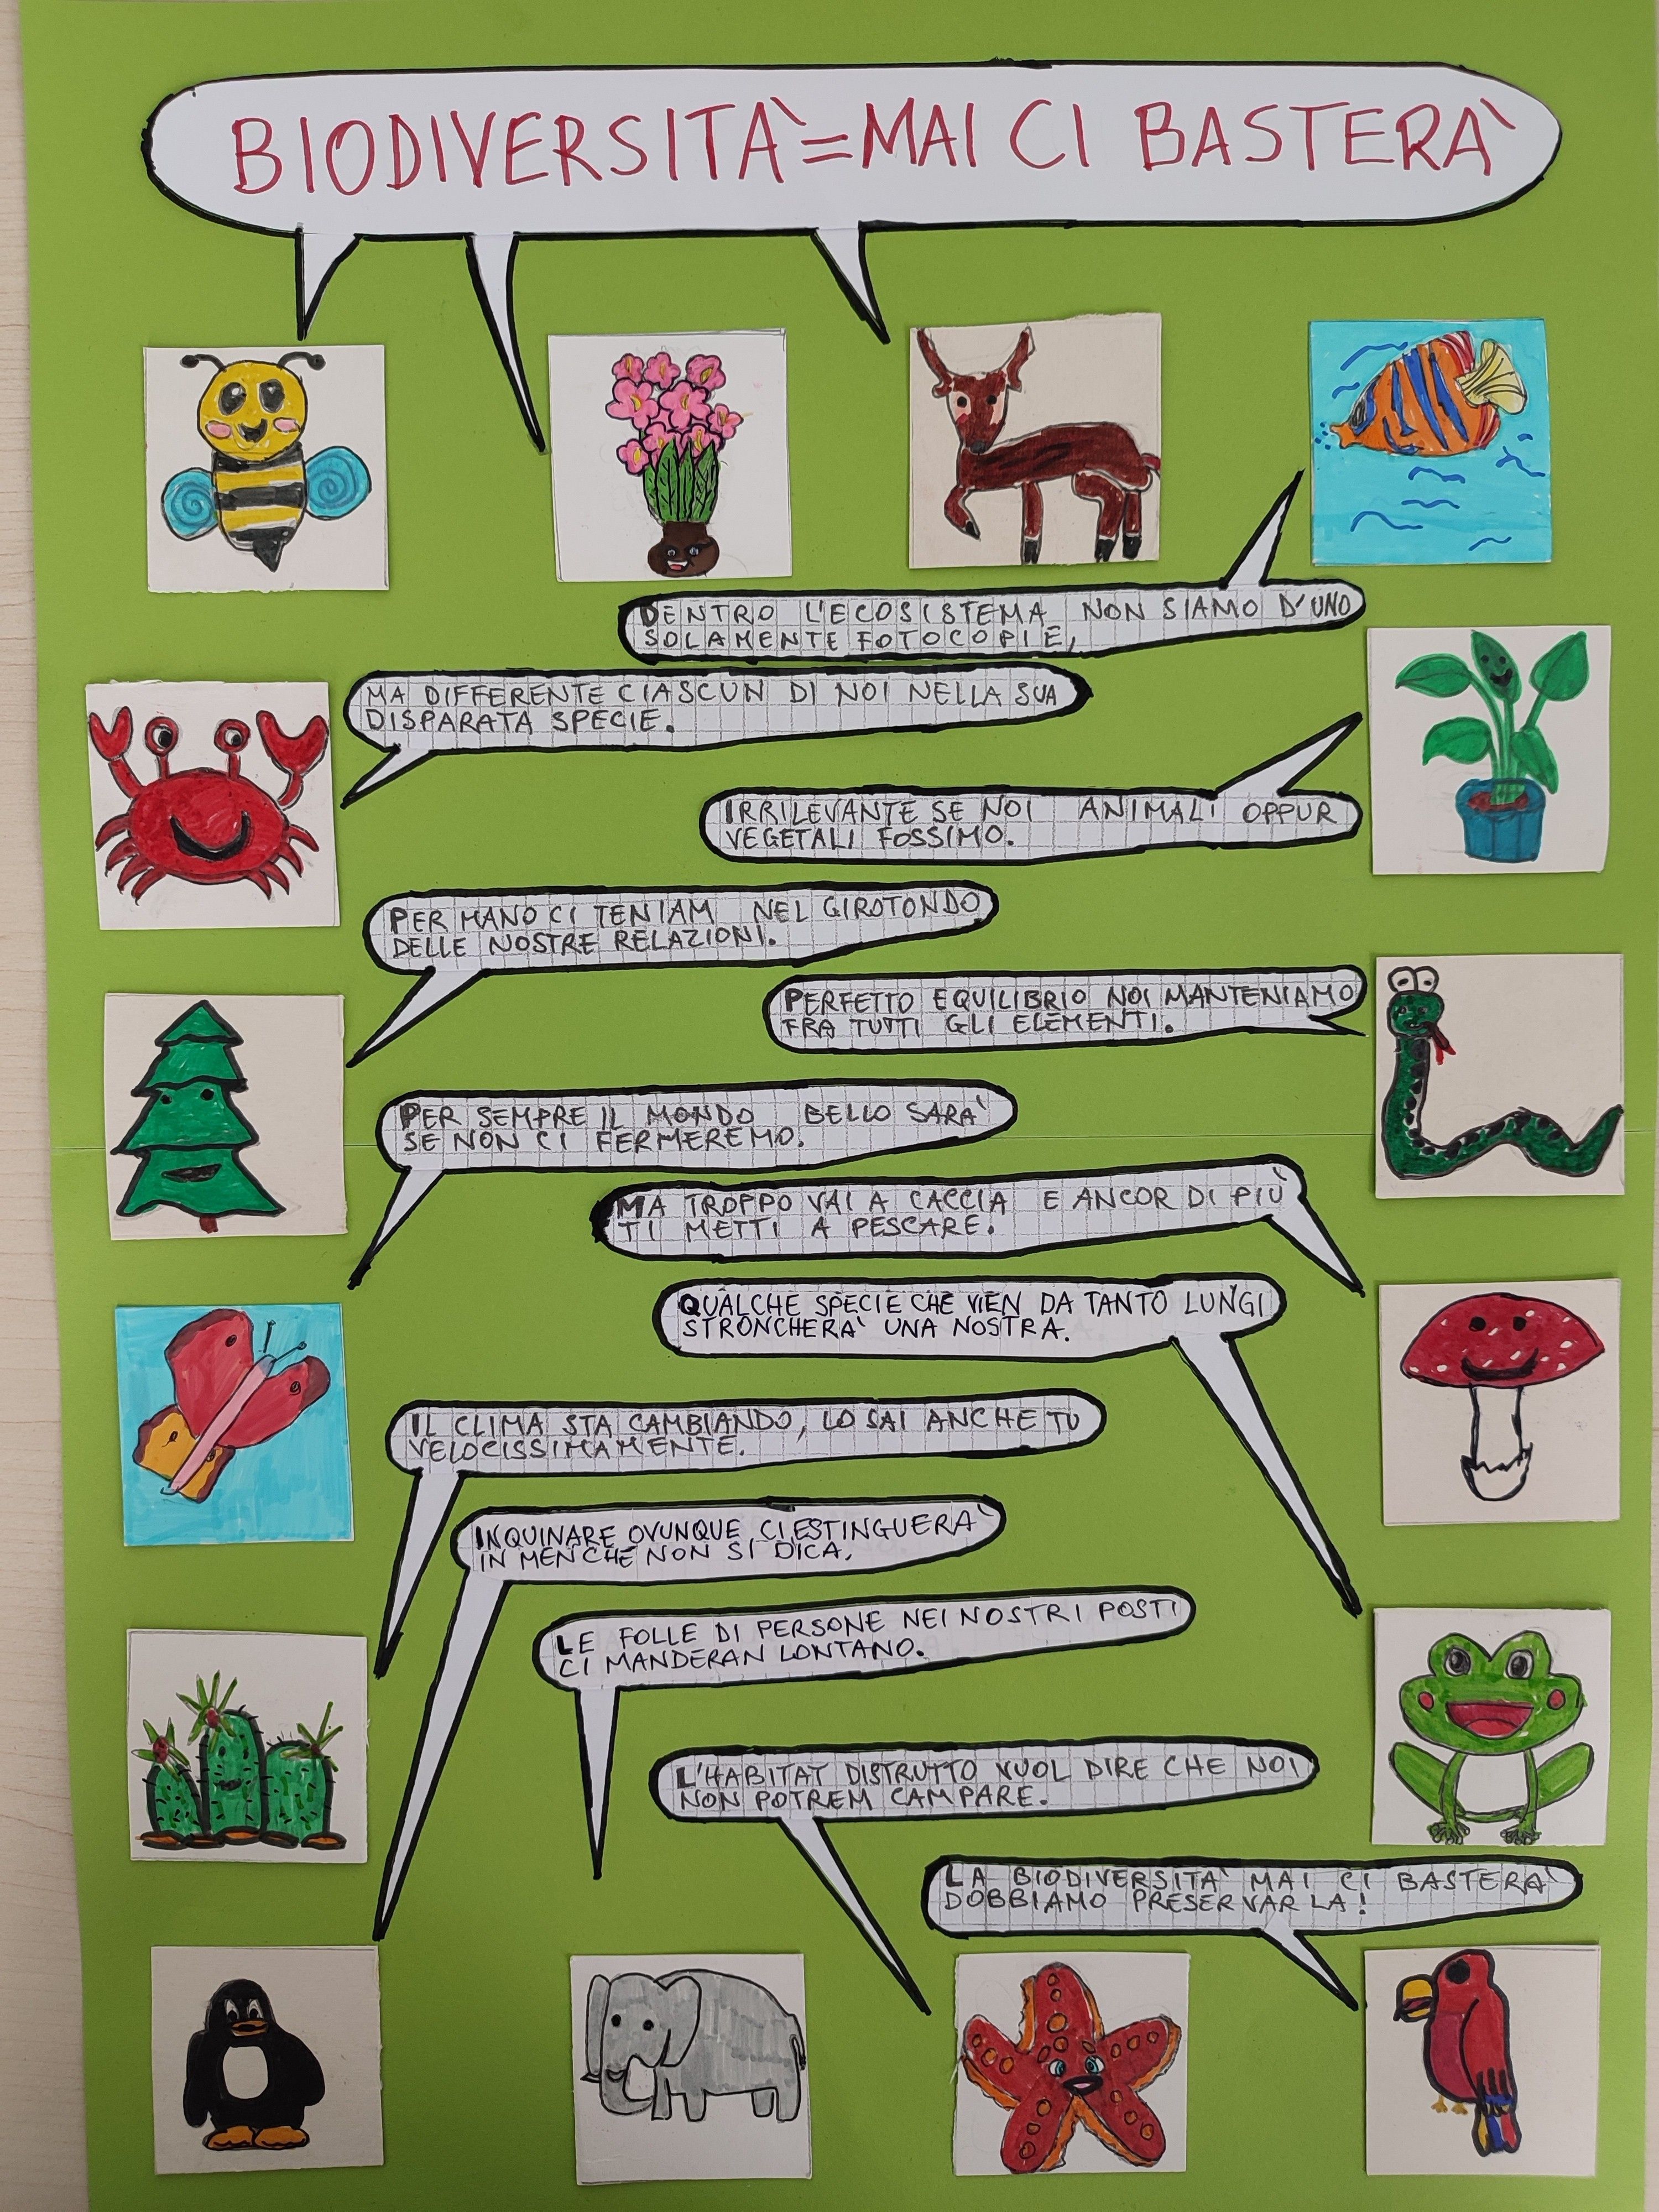 BIODIVERSITÀ=MAI CI BASTERÀ
DENTRO L'ECOSISTEMA NON SIAMO D'UNO
SOLAMENTE FOTOCOPIE,
MA DIFFERENTE CIASCUN DI NOI NELLA SUA
DISPARATA SPECIE.
IRRILEVANTE SE NOI ANIMALI OPPUR
VEGETALI FOSSIMO.
PER MANO CI TENIAM NEL GIROTONDO
DELLE NOSTRE RELAZIONI.
PERFETTO EQUILIBRIO NOI MANTENIAMO
FRA TUTTI GLI ELEMENTI.
PER SEMPRE IL MONDO BELLO SARÀ
SE NON CI FERMEREMO.
MA TROPPO VAI A CACCIA E ANCOR DI PIÙ
TI METTI A PESCARE.
QUALCHE SPECIE CHE VIEN DA TANTO LUNGI
STRONCHERA' UNA NOSTRA.
IL CLIMA STA CAMBIANDO, LO SAI ANCHE TU
VELOCISSIMAMENTE.
INQUINARE OVUNQUE CI ESTINGUERÀ
IN MEN CHE NON SI DICA.
LE FOLLE DI PERSONE NEI NOSTRI POSTI
CI MANDERAN LONTANO.
L'HABITAT DISTRUTTO VUOL DIRE CHE NOI
NON POTREM CAMPARE.
LA BIODIVERSITÀ MAI CI BASTERÀ
DOBBIAMO PRESERVARLA!